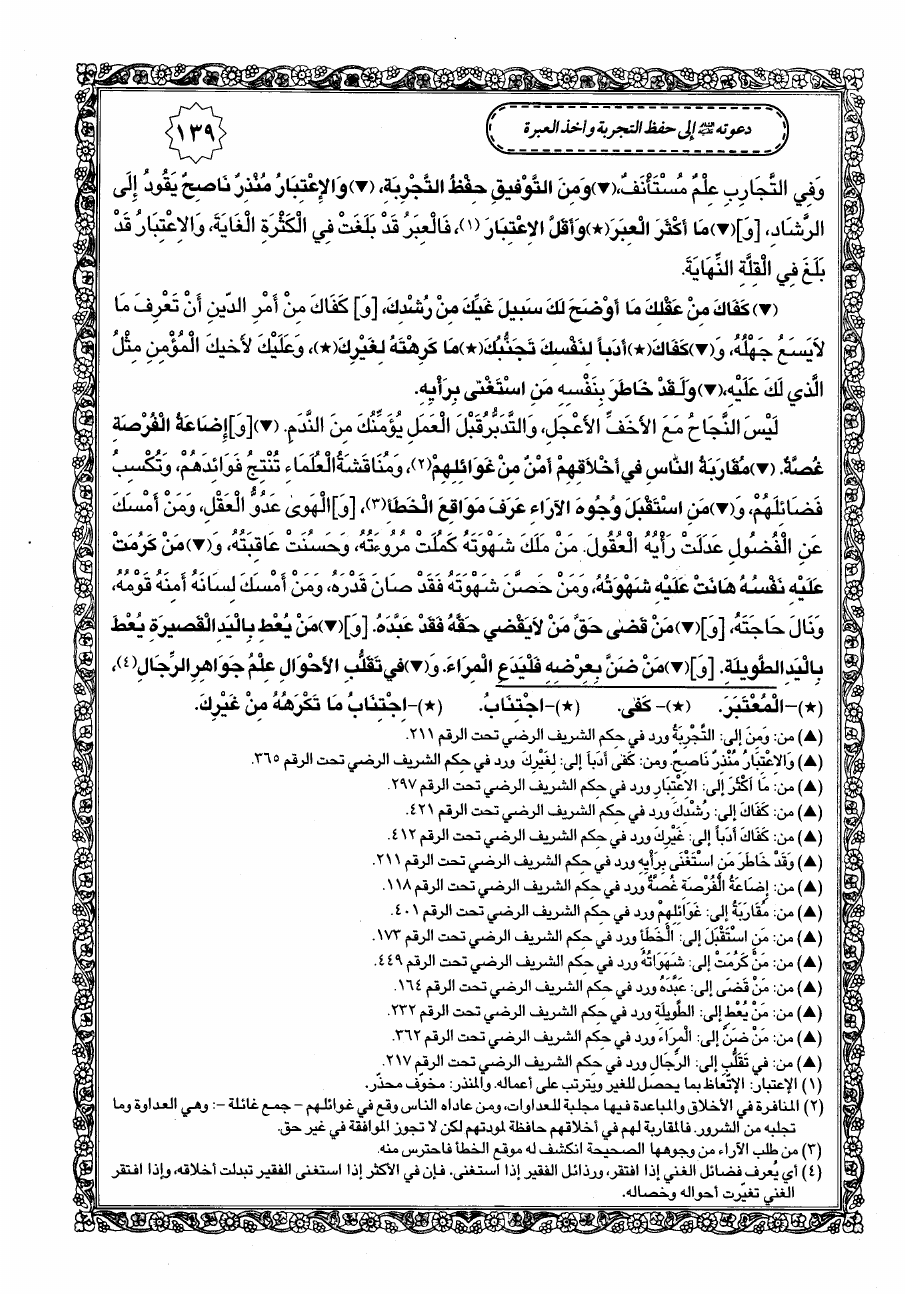 دعوته عليه السلام إلى حفظ التجربة وأخذ العبرة
١٣٩
وَفِي التَّجَارِبِ عِلْمٌ مُسْتَأْنَفٌ، (▼) وَمِنَ التَّوْفيقِ حِفْظُ التَّجْرِبَةِ، (▼) وَالإِعْتِبَارُ مُنْذِرٌ نَاصِحٌ يَقُودُ إِلَى
الرَّشَادِ، [وَ] (▼) مَا أَكْثَرَ الْعِبَرَ (★) وَأَقَلَّ الإِعْتِبَارَ (١)، فَالْعِبَرُ قَدْ بَلَغَتْ فِي الْكَثْرَةِ الْغَايَةَ، وَالاِعْتِبَارُ قَدْ
بَلَغَ فِي الْقِلَّةِ النِّهَايَةَ.
(▼) كَفَاكَ مِنْ عَقْلِكَ مَا أَوْضَحَ لَكَ سَبيلَ غَيِّكَ مِنْ رُشْدِكَ، [وَ] كَفَاكَ مِنْ أَمْرِ الدّينِ أَنْ تَعْرِفَ مَا
لاَ يَسَعُ جَهْلُهُ، وَ (▼) كَفَاكَ (★) أَدَباً لِنَفْسِكَ تَجَنُّبُكَ (★) مَا كَرِهْتَهُ لِغَيْرِكَ (★)، وَعَلَيْكَ لأَخيكَ الْمُؤْمِنِ مِثْلُ
الَّذي لَكَ عَلَيْهِ، (▼) وَلَقَدْ خَاطَرَ بِنَفْسِهِ مَنِ اسْتَغْنى بِرَأْيِهِ.
لَيْسَ النَّجَاحُ مَعَ الأَخَفِّ الأَعْجَلِ، وَالتَّدَبُّرُ قَبْلَ الْعَمَلِ يُؤَمِّنُكَ مِنَ النَّدَمِ. (▼) [وَ] إِضَاعَةُ الْفُرْصَةِ
غُصَّةٌ. (▼) مُقَارَبَةُ النَّاسِ في أَخْلاَقِهِمْ أَمْنٌ مِنْ غَوَائِلِهِمْ (٢)، وَمُنَاقَشَةُ الْعُلَمَاءِ تُنْتِجُ فَوَائِدَهُمْ، وَتُكْسِبُ
فَضَائِلَهُمْ، وَ (▼) مَنِ اسْتَقْبَلَ وُجُوهَ الآرَاءِ عَرَفَ مَوَاقِعَ الْخَطَأِ (٣)، [وَ] الْهَوىٰ عَدُوُّ الْعَقْلِ، وَمَنْ أَمْسَكَ
عَنِ الْفُضُولِ عَدَلَتْ رَأْيَهُ الْعُقُولُ. مَنْ مَلَكَ شَهْوَتَهُ كَمُلَتْ مُرُوءَتُهُ، وَحَسُنَتْ عَاقِبَتُهُ، وَ (▼) مَنْ كَرُمَتْ
عَلَيْهِ نَفْسُهُ هَانَتْ عَلَيْهِ شَهْوَتُهُ، وَمَنْ حَصَّنَ شَهْوَتَهُ فَقَدْ صَانَ قَدْرَهُ، وَمَنْ أَمْسَكَ لِسَانَهُ أَمِنَهُ قَوْمُهُ،
وَنَالَ حَاجَتَهُ، [وَ] (▼) مَنْ قَضىٰ حَقَّ مَنْ لاَ يَقْضي حَقَّهُ فَقَدْ عَبَّدَهُ. [وَ] (▼) مَنْ يُعْطِ بِالْيَدِ الْقَصيرَةِ يُعْطَ
بِالْيَدِ الطَّويلَةِ. [وَ] (▼) مَنْ ضَنَّ بِعِرْضِهِ فَلْيَدَعِ الْمِرَاءَ. وَ (▼) في تَقَلُّبِ الأَحْوَالِ عِلْمُ جَوَاهِرِ الرِّجَالِ (٤)،
(★)-الْمُعْتَبَرَ. (★)-كَفىٰ. (★)-اجْتِنَابُ. (★)-اجْتِنَابُ مَا تَكْرَهُهُ مِنْ غَيْرِكَ.
(▲) من: وَمِنَ إلى: التَّجْرِبَةُ ورد في حكم الشريف الرضي تحت الرقم ٢١١.
(▲) وَالاِعْتِبَارُ مُنْذِرٌ نَاصِحٌ. ومن: كَفى أَدَباً إلى: لِغَيْرِكَ ورد في حكم الشريف الرضي تحت الرقم ٣٦٥.
(▲) من: مَا أَكْثَرَ إلى: الاِعْتِبَارِ ورد في حكم الشريف الرضي تحت الرقم ٢٩٧.
(▲) من: كَفَاكَ إلى: رُشْدَكَ ورد في حكم الشريف الرضي تحت الرقم ٤٢١.
(▲) من: كَفَاكَ أَدَباً إلى: غَيْرِكَ ورد في حكم الشريف الرضي تحت الرقم ٤١٢.
(▲) وَقَدْ خَاطَرَ مَنِ اسْتَغْنَى بِرَأْيِهِ ورد في حكم الشريف الرضي تحت الرقم ٢١١.
(▲) من: إِضَاعَةُ الْفُرْصَةِ غُصَّةٌ ورد في حكم الشريف الرضي تحت الرقم ١١٨.
(▲) من: مُقَارَبَةُ إلى: غَوَائِلِهِمْ ورد في حكم الشريف الرضي تحت الرقم ٤٠١.
(▲) من: مَنِ اسْتَقْبَلَ إلى: الْخَطَأَ ورد في حكم الشريف الرضي تحت الرقم ١٧٣.
(▲) من: مَنْ كَرُمَتْ إلى: شَهَوَاتُهُ ورد في حكم الشريف الرضي تحت الرقم ٤٤٩.
(▲) من: مَنْ قَضَى إلى: عَبَّدَهُ ورد في حكم الشريف الرضي تحت الرقم ١٦٤.
(▲) من: مَنْ يُعْطِ إلى: الطَّويلَةِ ورد في حكم الشريف الرضي تحت الرقم ٢٣٢.
(▲) من: مَنْ ضَنَّ إلى: الْمِرَاءَ ورد في حكم الشريف الرضي تحت الرقم ٣٦٢.
(▲) من: في تَقَلُّبِ إلى: الرِّجَالِ ورد في حكم الشريف الرضي تحت الرقم ٢١٧.
(١) الإعتبار: الإتّعاظ بما يحصل للغير ويترتب على أعماله. والمنذر: مخوف محذّر.
(٢) المنافرة في الأخلاق والمباعدة فيها مجلبة للعداوات، ومن عاداه الناس وقع في غوائلهم - جمع غائلة -: وهي العداوة وما
تجلبه من الشرور. فالمقاربة لهم في أخلاقهم حافظة لمودتهم لكن لا تجوز الموافقة في غير حق.
(٣) من طلب الآراء من وجوهها الصحيحة انكشف له موقع الخطأ فاحترس منه.
(٤) أي يُعرف فضائل الغني إذا افتقر، ورذائل الفقير إذا استغنى. فإن في الأكثر إذا استغنى الفقير تبدلت أخلاقه، وإذا افتقر
الغني تغيّرت أحواله وخصاله.